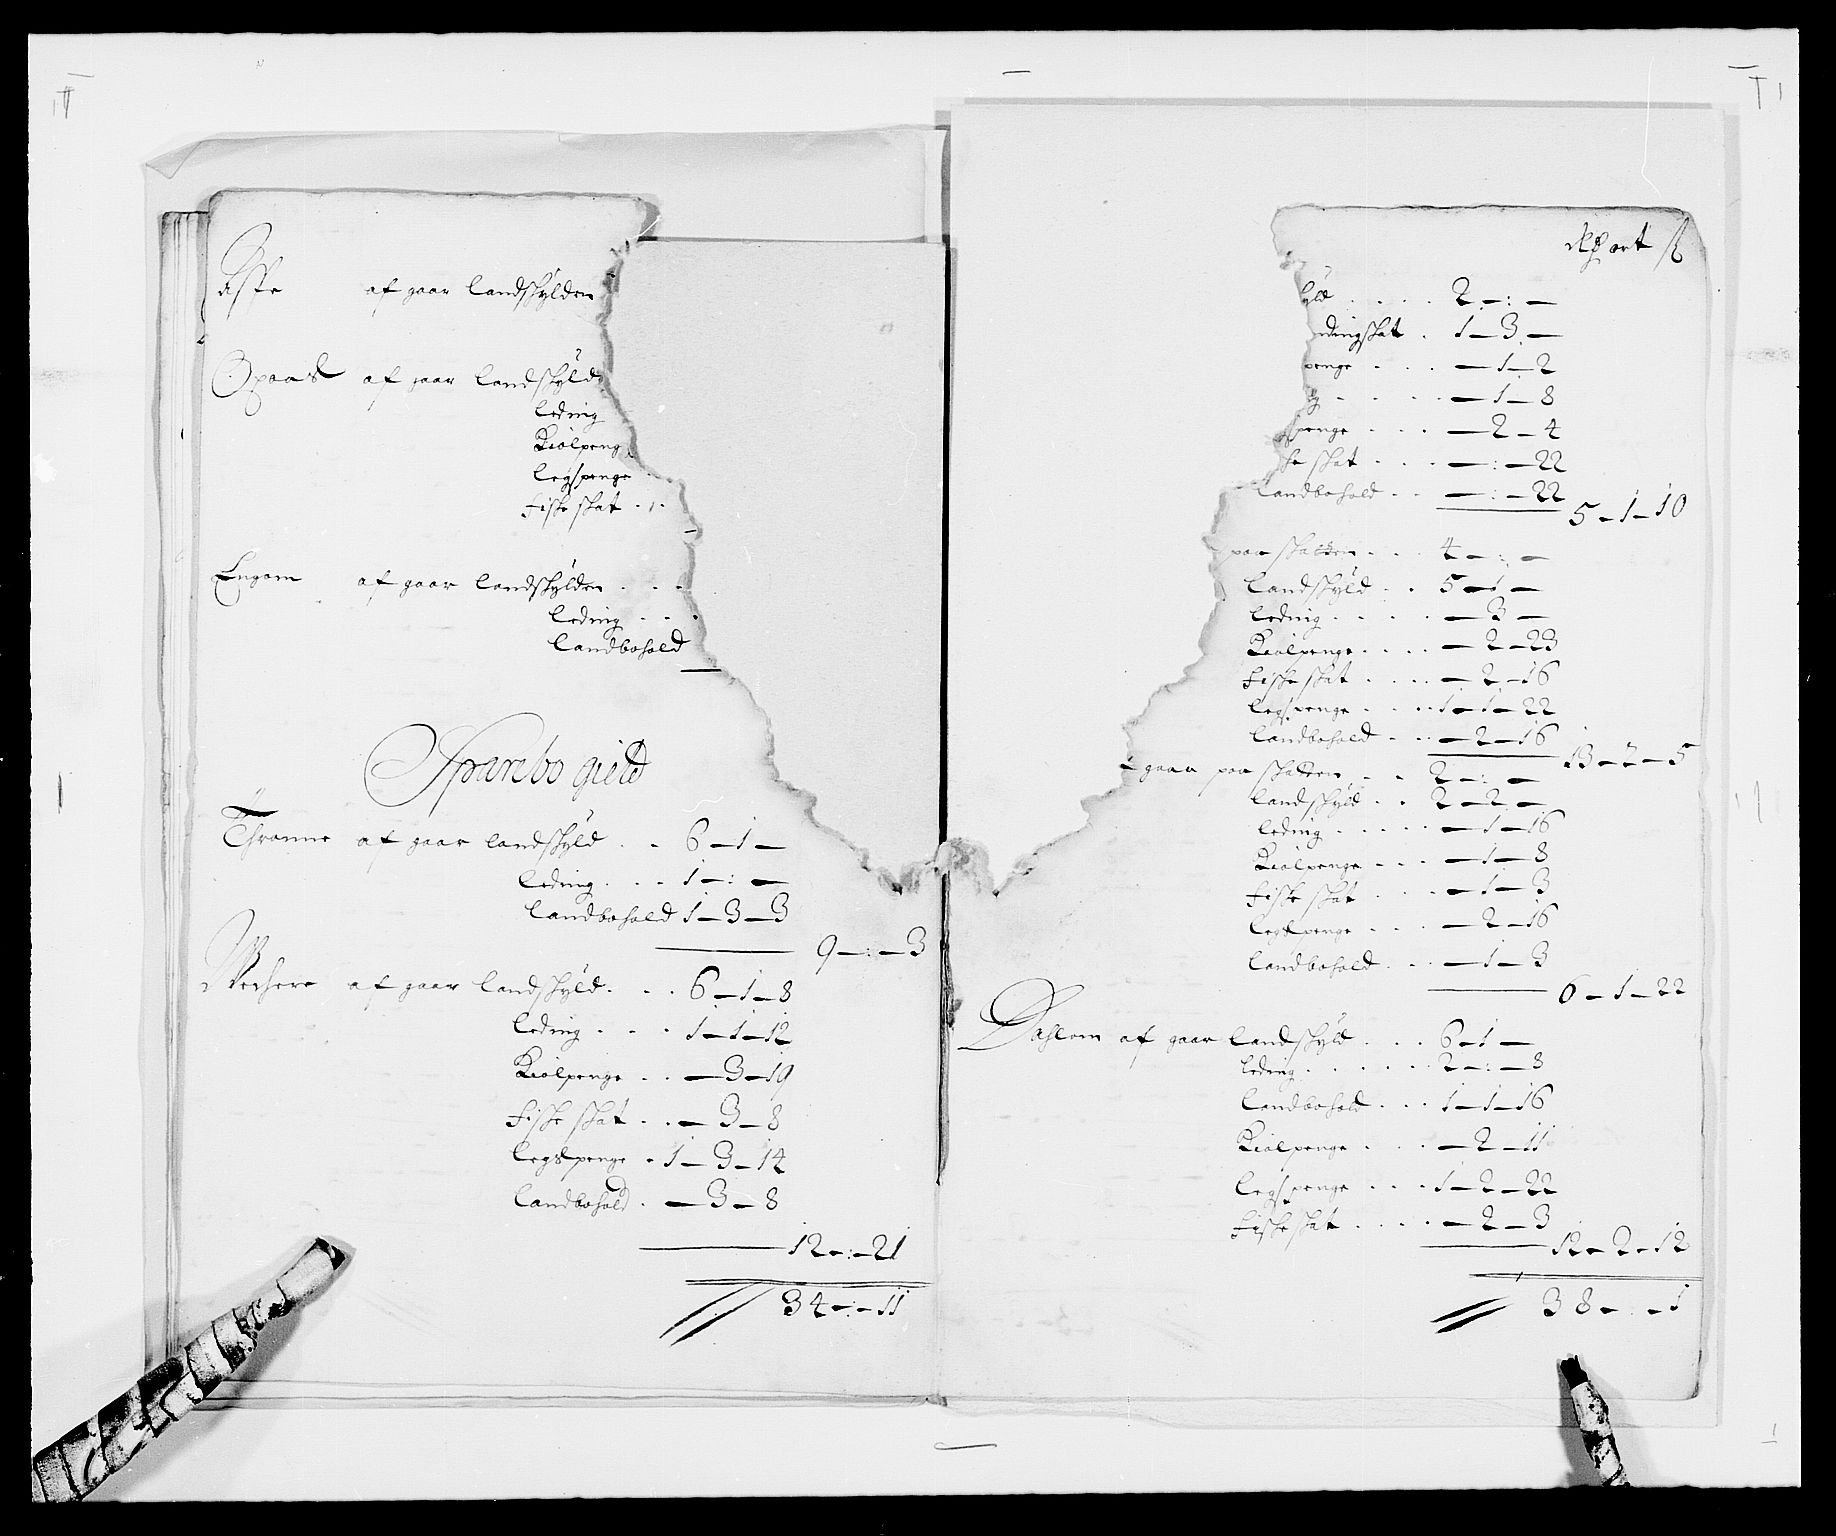 Aske af gaar landskylden
Opaas af gaar landskyld
leding
Kiølpeng
legspenge
fiske skat . . .
Engom af gaar landskylden . . .
leding . . .
landbohold
Sparebo gield
Thronne af gaar landskyld . . 6 – 1 –
leding . . . 1 – : –
landbohold 1 – 3 – 3
9 – : – 3
Wedhere af gaar landskyld . . . 6 – 1 – 8
leding . . . 1 – 1 – 12
Kiølpenge . . – 3 – 19
fiske skat . . – 3 – 8
legspenge . 1 – 3 – 14
landbohold . – 3 – 8
12 – : – 21
34 – : – 11
Rdr ort ß
kyld . . . . 2 – : –
edingskat . 1 – 3 –
penge . . . – 1 – 2
g . . . . . – 1 – 8
spenge . . . – 2 – 4
ke skat . . . – : – 22
landbohold . . – : – 22
5 – 1 – 10
paa skatten . . . 4 – : –
landskyld . . 5 – 1 –
leding . . . . . – 3 –
Kiølpenge . . . . – 2 – 23
fiske skat . . . . – 2 – 16
legspenge . . . . 1 – 1 – 22
landbohold . . . – 2 – 16
13 – 2 – 5
gaar paa skatten . . 2 – : –
landskyld . . 2 – 2 –
leding . . . . . – 1 – 16
Kiølpenge . . . – 1 – 8
fiske skat . . . – 1 – 3
legspenge . . . – 2 – 16
landbohold . . . – 1 – 3
6 – 1 – 22
Dahlem af gaar landskyld . . . 6 – 1 –
leding . . . . . . 2 – : – 8
landbohold . . . 1 – 1 – 16
Kiølpenge . . . – 2 – 11
legspenge . . . 1 – 2 – 22
fiske skat . . . . – 2 – 3
12 – 2 – 12
38 – : – 1